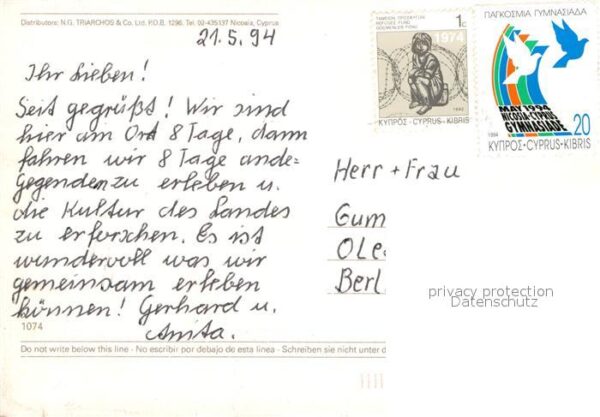 Distributors: N.G. TRIARCHOS & Co. Ltd. P.O.B. 1296. Tel. 02-435137 Nicosia, Cyprus
21.5.94
Ihr Lieben!
Seit gegrüßt! Wir sind
hier am Ort 8 Tage, dann
fahren wir 8 Tage ande-
Gegenden zu erleben u.
die Kultur des Landes
zu erforschen. Es ist
wundervoll was wir
gemeinsam erleben
können! Gerhard u.
Anita.
1074
Do not write below this line - No escribir por debajo de esta linea - Schreiben sie nicht unter d
1c
REFUGEE FUND
1974
ΚΥΠΡΟΣ-CYPRUS-KIBRIS
ΠΑΓΚΟΣΜΙΑ ΓΥΜΝΑΣΙΑΔΑ
MAY 1994
NICOSIA-CYPRUS
GYMNASIADE
1994
20
ΚΥΠΡΟΣ-CYPRUS-KIBRIS
Herr + Frau
Gum
OLe
Berl
privacy protection
Datenschutz